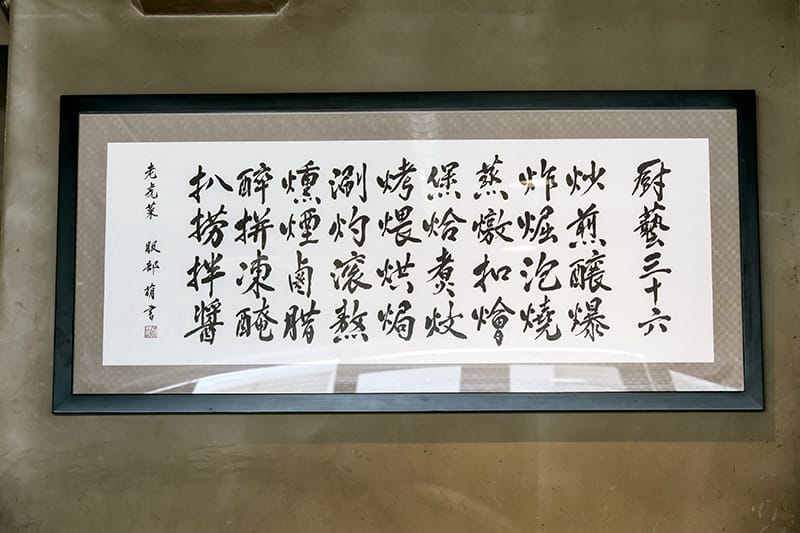 廚藝三十六
炒煎釀爆
炸焗泡燒
蒸燉扣燴
煲烚煮炆
烤煨烘焗
涮灼滾熬
燻煙鹵腊
醉拼凍醃
扒撈拌醬
老虎菜 服部 萠書